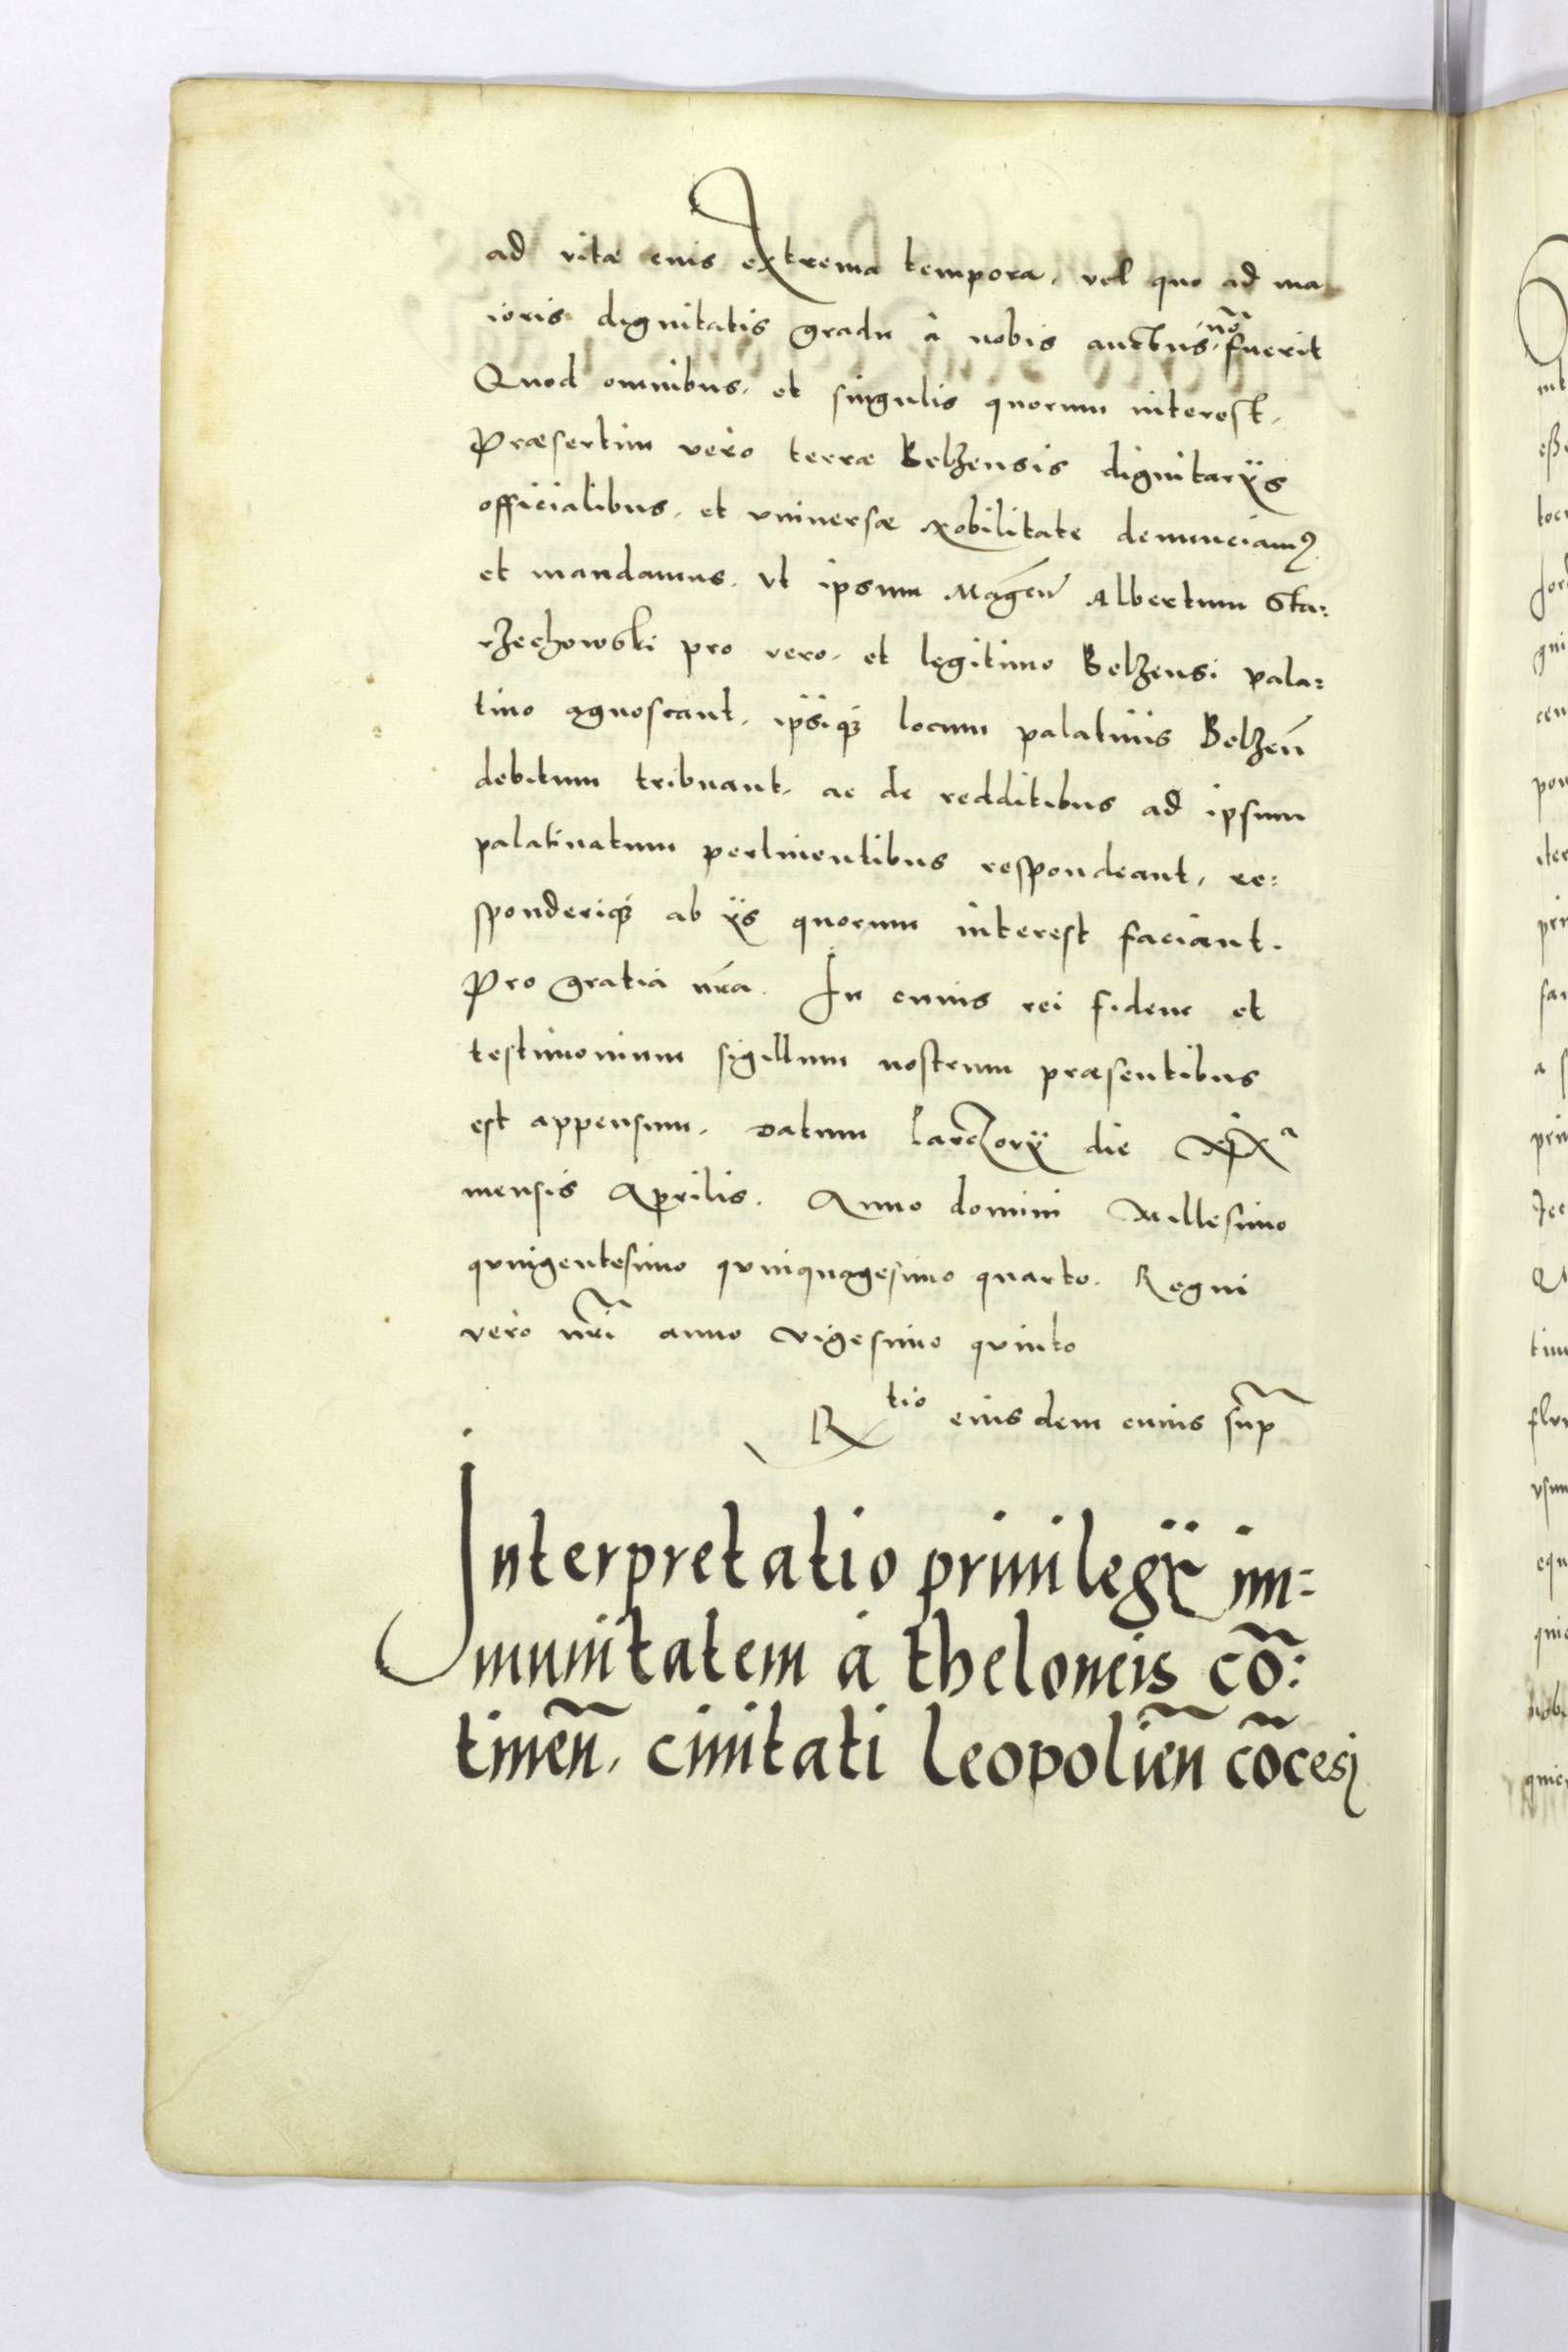 ad vitæ euis extrema tempora, vel quo ad ma
ioris dignitatis gradu à nobis auctus, nõ fuerit
Quod omnibus, et singulis quorum interest,
Præsertim vero terræ Belzensis dignitarÿs
officialibus, et vniuersæ Nobilitate denunciamꝰ
et mandamus. Vt ipsum Magcũ Albertum Sta:
rzechowski pro vero, et legitimo Belzensi pala:
tino agnoscant, ipsiqꝫ locum palatinis Belzeñ
debitum tribuant, ac de redditibus ad ipsum
palatinatum pertinentibus respondeant, re:
sponderiqꝫ ab ÿs quorum interest faciant.
Pro gratia nr̃a. In cuius rei fidem et
testimonium sigillum nostrum præsentibus
est appensum. Datum Parczoÿ die
mensis Aprilis. Anno domini Millesimo
quingentesimo quinquagesimo quarto. Regni
vero nr̃i anno vigesimo quinto
Rtio eius dem cuius sup̃
Interpretatio priuilegÿ im:
munitatem à theloneis cõ:
tineñ. ciuitati Leopolieñ cõcesi